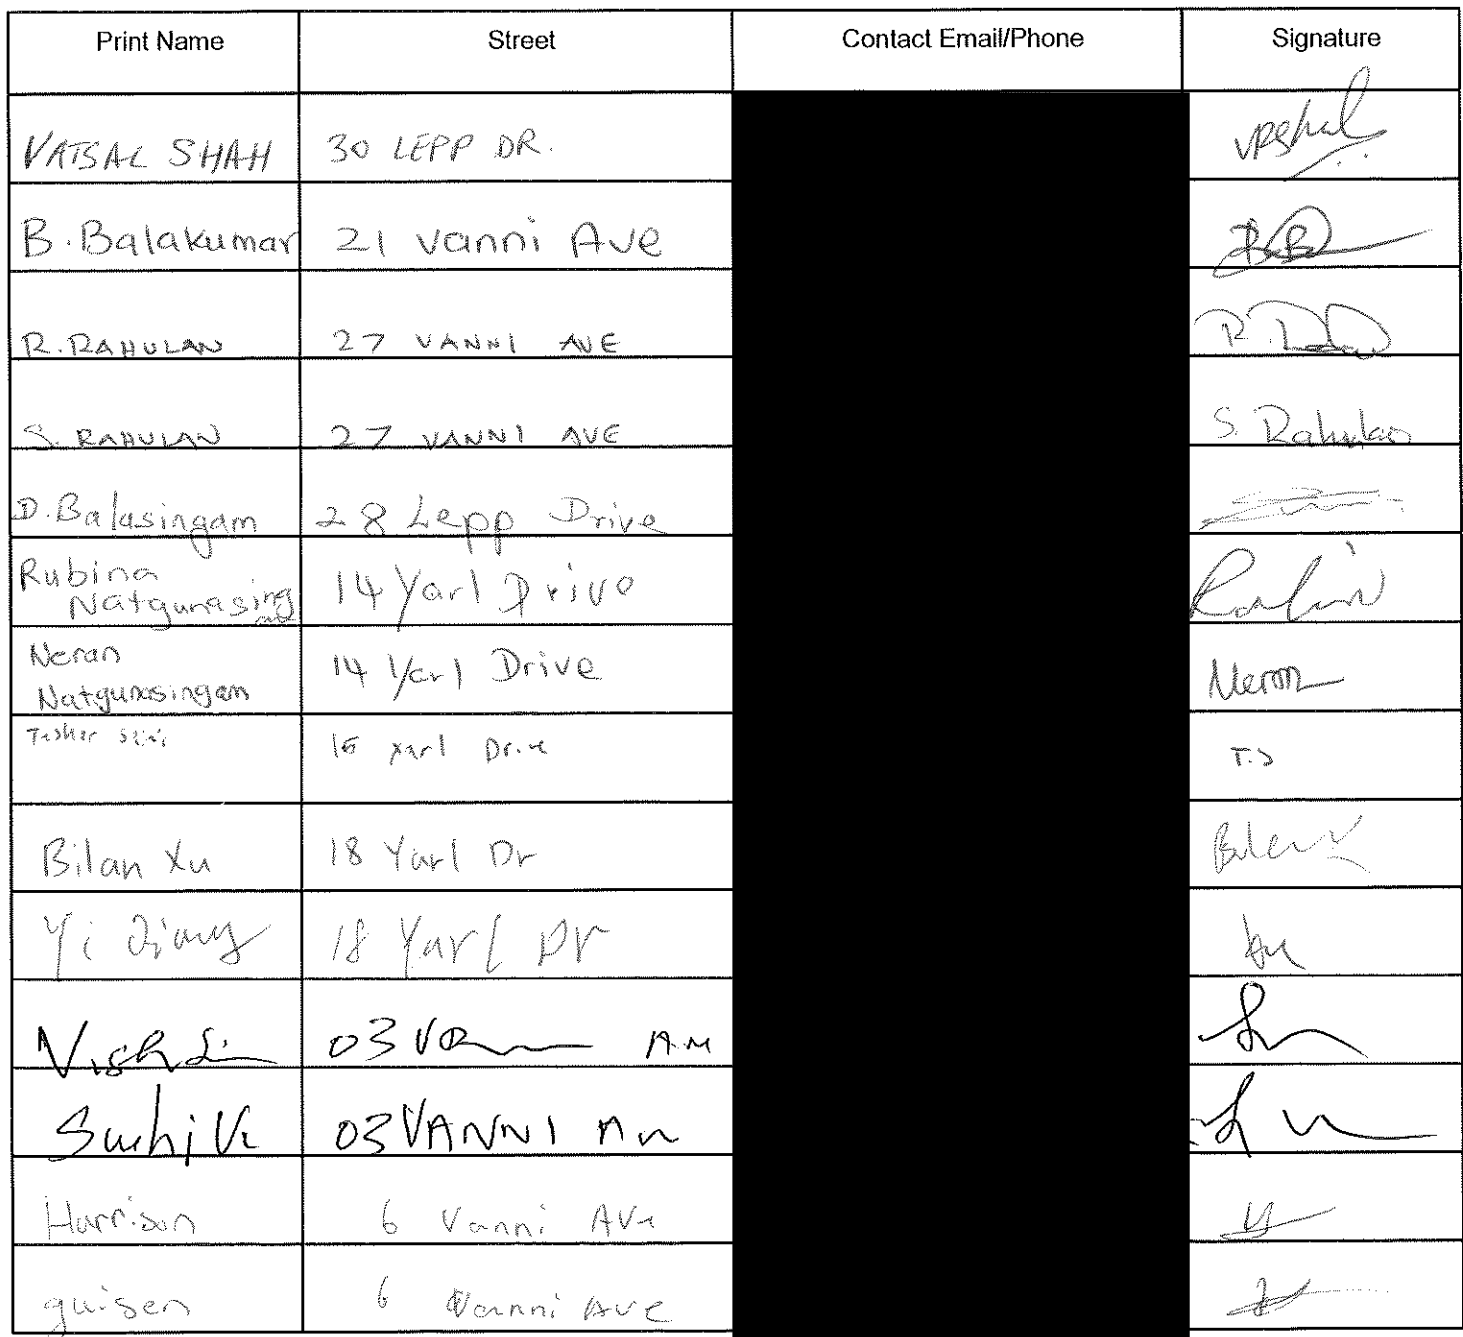 Print Name Street Contact Email/Phone Signature
VATSAL SHAH 30 LEPP DR.
B. Balakumar 21 Vanni Ave
R. RAHULAN 27 VANNI AVE
S. RAHULAN 27 VANNI AVE S. Rahulan
D. Balasingam 28 Lepp Drive
Rubina
Natgunasing
14 Yarl Drive
Neran
Natgunasingam
14 Yarl Drive Neran
Yarl Drive T.S
Bilan Xu 18 Yarl Dr
Yi 18 Yarl Dr
03
03 VANNI
Harrison 6 Vanni Ave
guisen 6 Vanni Ave